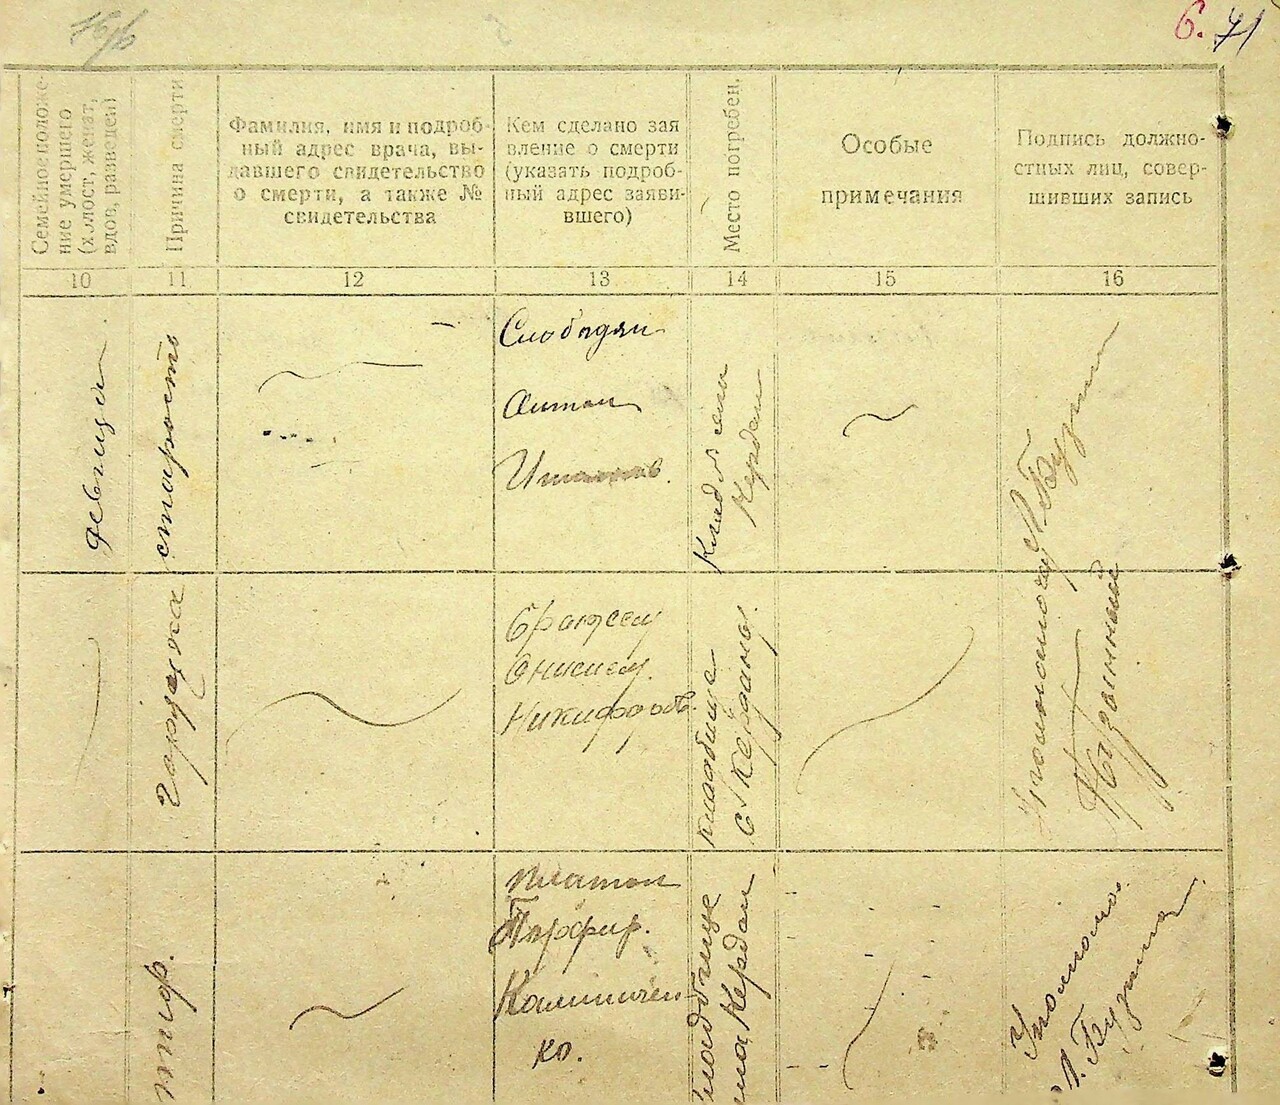 6. 71
Семейное положе-
ние умершего
(холост, женат,
вдов, разведен)
Причина смерти
Фамилия, имя и подроб-
ный адрес врача, вы-
давшего свидетельство
о смерти, а также №
свидетельства
Кем сделано зая
вление о смерти
(указать подроб-
ный адрес заяви-
вшего)
Место погребен.
Особые
примечания
Подпись должно-
стных лиц, совер-
шивших запись
10 11 12 13 14 15 16
девица
старость
Слободян
Антон
Кладб
Кердан
горячка
Онисим
Никифоров.
кладбище
с Кердана
тиф.
Платон
Порфир.
Калиничен
ко.
кладбище
Кердан